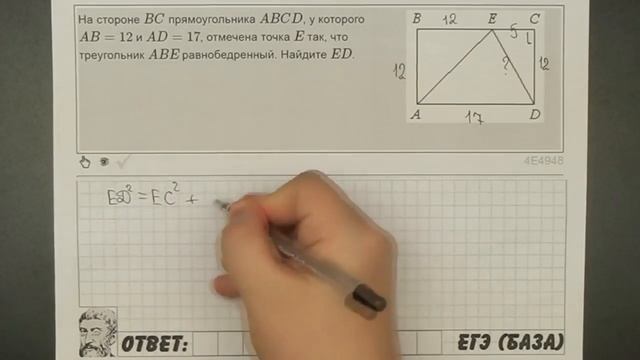 На стороне BC прямоугольника ABCD, у которого
AB = 12 и AD = 17, отмечена точка E так, что
треугольник ABE равнобедренный. Найдите ED.
B 12 E 5 C
12 ? 12
A 17 D
4E4948
ED² = EC² +
ОТВЕТ: ЕГЭ (БАЗА)